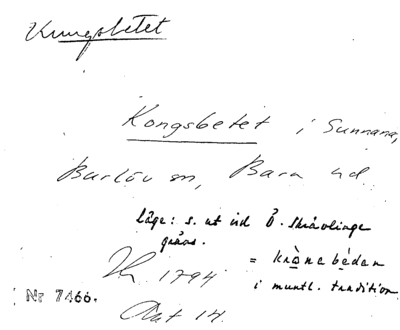 Kungsbetet
Kongsbetet i Sunnana,
Burlöv sn, Bara hd.
Läge: s. ut vid Ö. Skrävlinge
gräns.
= kròna bédan
i muntl. tradition
1794
Akt 14.
Nr 7466.